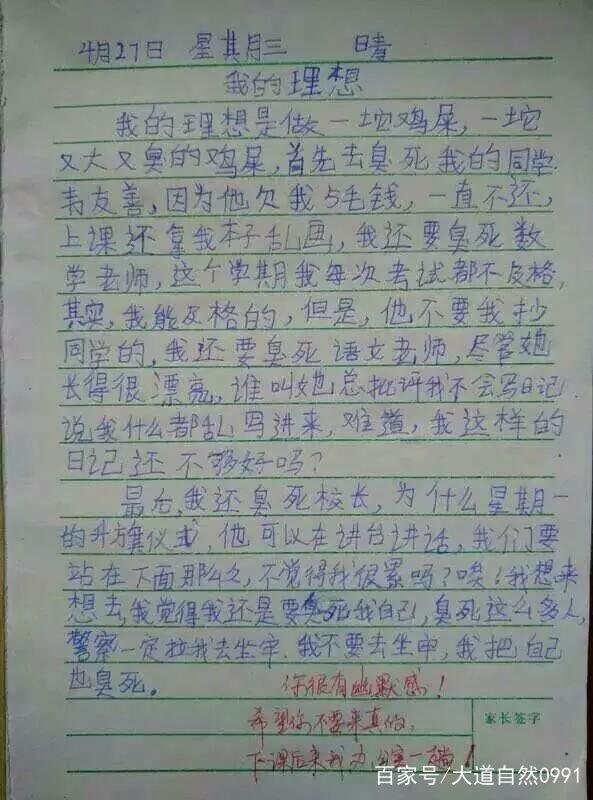 4月27日 星其月三 晴
我的理想
我的理想是做一坨鸡屎，一坨
又大又臭的鸡屎，首先去臭死我的同学
韦友善，因为他欠我5毛钱，一直不还，
上课还拿我本子乱画，我还要臭死数
学老师，这个学期我每次考试都不及格，
其实，我能及格的，但是，他不要我抄
同学的，我还要臭死语文老师，尽管她
长得很漂亮，谁叫她总批评我不会写日记
说我什么都乱写进来，难道，我这样的
日记还不够好吗？
最后，我还臭死校长，为什么星期一
的升旗仪式，他可以在讲台讲话，我们要
站在下面那么久，不觉得我很累吗？唉！我想来
想去，我觉得我还是要臭死我自己，臭死这么多人，
警察一定拉我去坐牢，我不要去坐牢，我把自己
也臭死。
你很有幽默感！
希望你不要来真的，
下课后来我办公室一趟！
家长签字
百家号/大道自然0991